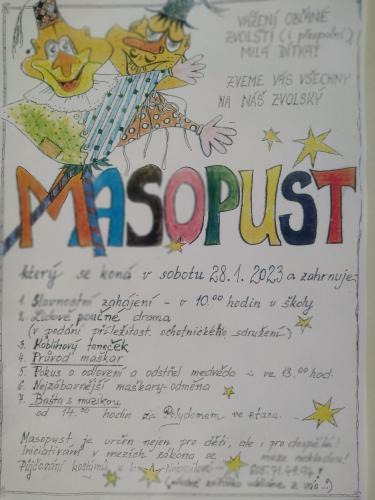 VÁŽENÍ OBČANÉ
ZVOLŠTÍ (i přespolní)
MILÁ DÍTKA!
ZVEME VÁS VŠECHNY
NA NÁŠ ZVOLSKÝ
MASOPUST
který se koná v sobotu 28.1. 2023 a zahrnuje:
1. Slavnostní zahájení - v 10.00 hodin u školy
2. Lidově poučné drama
(v podání příležitost. ochotnického sdružení)
3. Koblihový taneček
4. Průvod maškar
5. Pokus o odlovení a odstřel medvěda ve 13.00 hod.
6. Nejzábavnější maškary-odměna
7. Bašta s muzikou
od 14.30 hodin za Polydomem ve stanu.
Masopust je určen nejen pro děti, ale i pro dospělé!
Iniciativám v mezích zákona se meze nekladou!
Půjčování kostýmů u